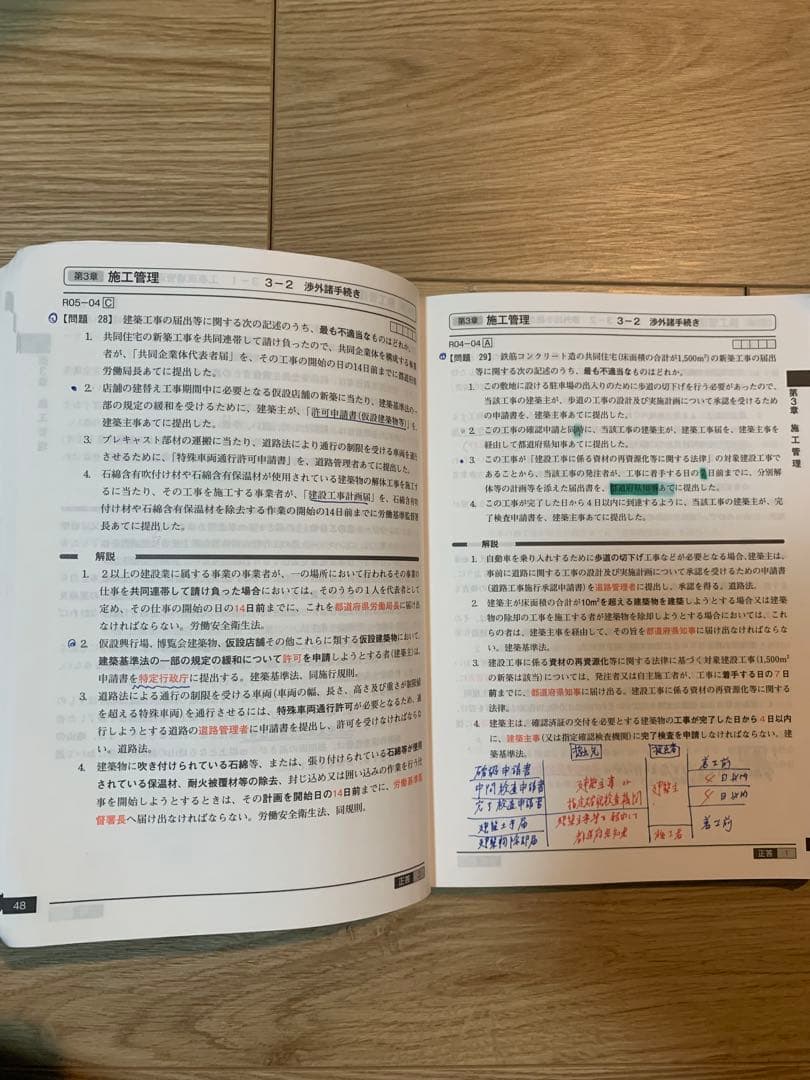 第3章 施工管理
3－2 渉外諸手続き
R05－04 C
【問題 28】 建築工事の届出等に関する次の記述のうち、最も不適当なものはどれか。
1. 共同住宅の新築工事を共同連帯して請け負ったので、共同企業体を構成する事業
者が、「共同企業体代表者届」を、その工事の開始の日の14日前までに都道府県
労働局長あてに提出した。
2. 店舗の建替え工事期間中に必要となる仮設店舗の新築に当たり、建築基準法の一
部の規定の緩和を受けるために、建築主が、「許可申請書(仮設建築物等)」を、
建築主事あてに提出した。
3. プレキャスト部材の運搬に当たり、道路法により通行の制限を受ける車両を通行
させるために、「特殊車両通行許可申請書」を、道路管理者あてに提出した。
4. 石綿含有吹付け材や石綿含有保温材が使用されている建築物の解体工事を施工す
るに当たり、その工事を施工する事業者が、「建設工事計画届」を、石綿含有吹
付け材や石綿含有保温材を除去する作業の開始の14日前までに労働基準監督署
長あてに提出した。
解説
1. 2以上の建設業に属する事業の事業者が、一の場所において行われるその事業の
仕事を共同連帯して請け負った場合においては、そのうちの1人を代表者として
定め、その仕事の開始の日の14日前までに、これを都道府県労働局長に届け出
なければならない。労働安全衛生法。
2. 仮設興行場、博覧会建築物、仮設店舗その他これらに類する仮設建築物において、
建築基準法の一部の規定の緩和について許可を申請しようとする者(建築主)は、
申請書を特定行政庁に提出する。建築基準法、同施行規則。
3. 道路法による通行の制限を受ける車両(車両の幅、長さ、高さ及び重さが制限値
を超える特殊車両)を通行させるには、特殊車両通行許可が必要となるため、通
行しようとする道路の道路管理者に申請書を提出し、許可を受けなければならな
い。道路法。
4. 建築物に吹き付けられている石綿等、または、張り付けられている石綿等が使用
されている保温材、耐火被覆材等の除去、封じ込め又は囲い込みの作業を行う仕
事を開始しようとするときは、その計画を開始日の14日前までに、労働基準監
督署長へ届け出なければならない。労働安全衛生法、同規則。
正答
48
第3章 施工管理
3－2 渉外諸手続き
R04－04 A
【問題 29】 鉄筋コンクリート造の共同住宅(床面積の合計が1,500㎡)の新築工事の届出
等に関する次の記述のうち、最も不適当なものはどれか。
1. この敷地に設ける駐車場の出入りのために歩道の切下げを行う必要があったので、
当該工事の建築主が、歩道の工事の設計及び実施計画について承認を受けるため
の申請書を、建築主事あてに提出した。
2. この工事の確認申請と同時に、当該工事の建築主が、建築工事届を、建築主事を
経由して都道府県知事あてに提出した。
3. この工事が「建設工事に係る資材の再資源化等に関する法律」の対象建設工事で
あることから、当該工事の発注者が、工事に着手する日の7日前までに、分別解
体等の計画等を添えた届出書を、都道府県知事あてに提出した。
4. この工事が完了した日から4日以内に到達するように、当該工事の建築主が、完
了検査申請書を、建築主事あてに提出した。
解説
1. 自動車を乗り入れするために歩道の切下げ工事などが必要となる場合、建築主は、
事前に道路に関する工事の設計及び実施計画について承認を受けるための申請書
(道路工事施行承認申請書)を道路管理者に提出し、承認を得る。道路法。
2. 建築主が床面積の合計が10㎡を超える建築物を建築しようとする場合又は建築
物の除却の工事を施工する者が建築物を除却しようとする場合においては、これ
らの者は、建築主事を経由して、その旨を都道府県知事に届け出なければならな
い。建築基準法。
3. 建設工事に係る資材の再資源化等に関する法律に基づく対象建設工事(1,500㎡
の新築は該当)については、発注者又は自主施工者が、工事に着手する日の7日
前までに、都道府県知事に届け出る。建設工事に係る資材の再資源化等に関する
法律。
4. 建築主は、確認済証の交付を必要とする建築物の工事が完了した日から4日以内
に、建築主事(又は指定確認検査機関)に完了検査を申請しなければならない。建
築基準法。
提出先 提出者
確認申請書 着工前
中間検査申請書 建築主事or 建築主 4日以内
完了検査申請書 指定確認検査機関 4日以内
建築工事届 建築主事を経由して 着工前
建築物除却届 都道府県知事 施工者
正答 1
第3章 施工管理